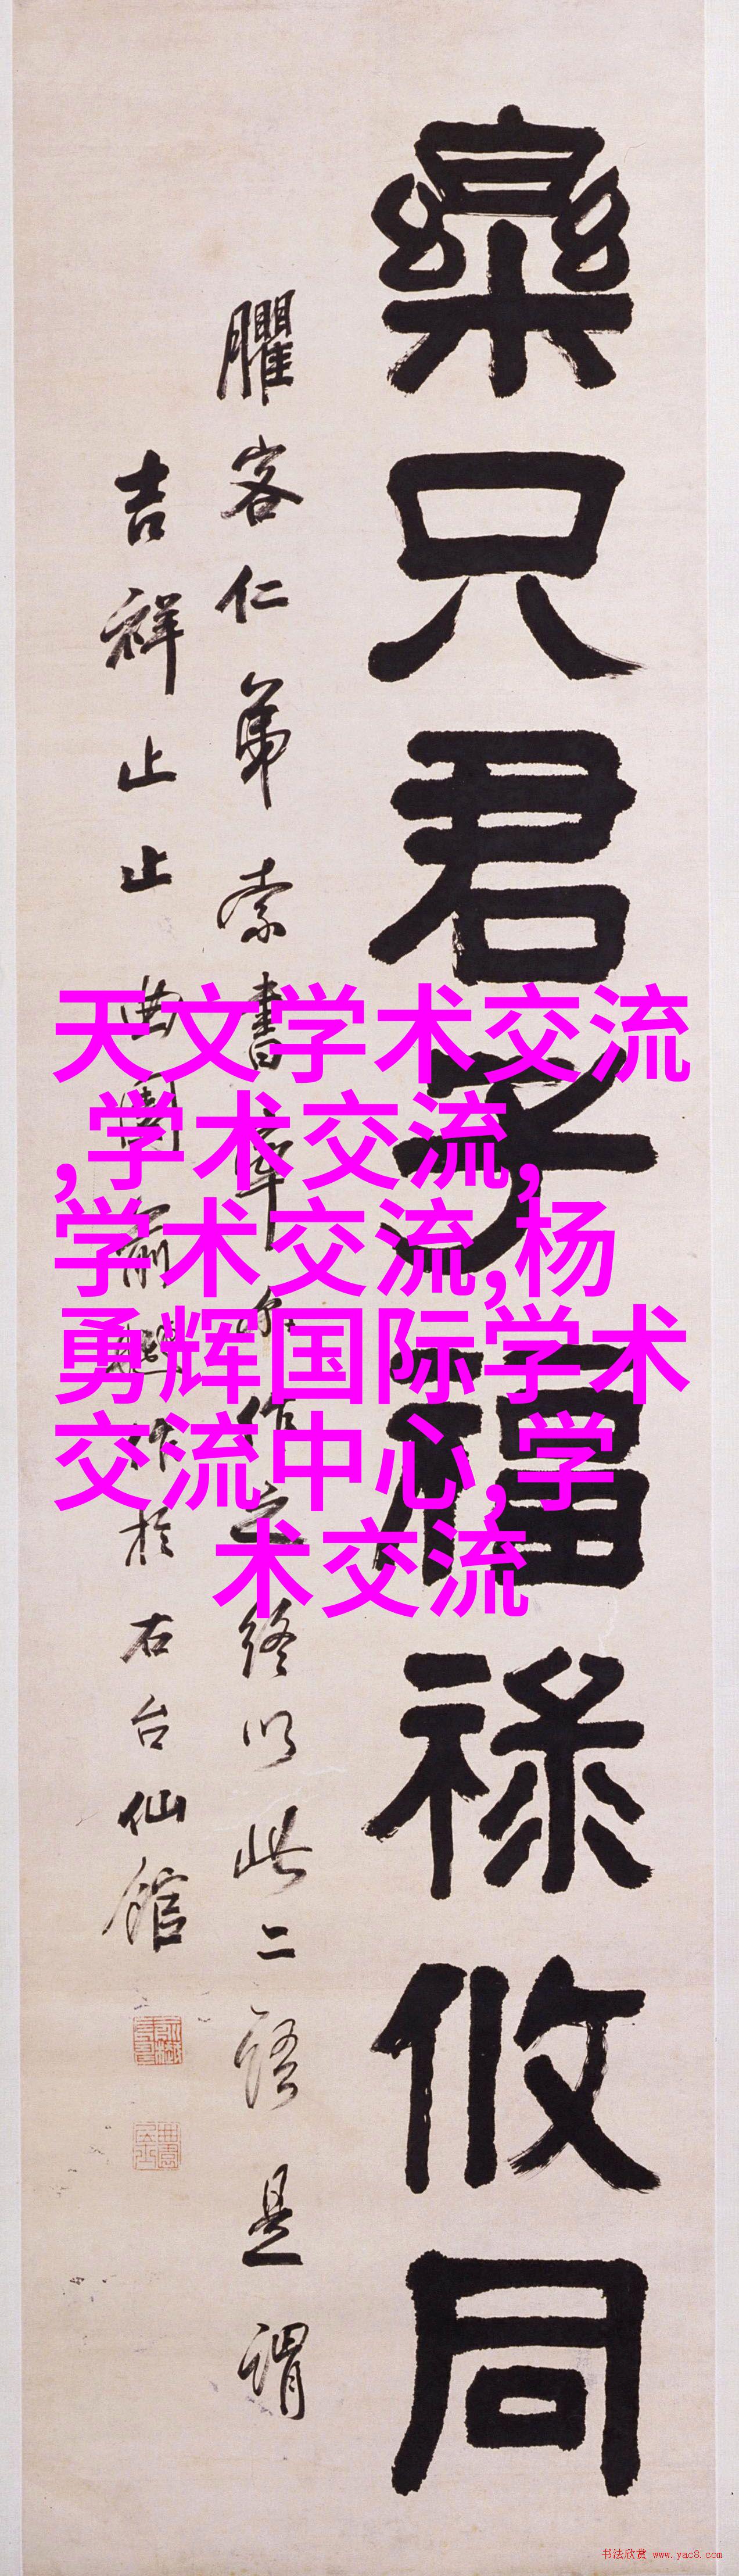 樂只君子福祿攸同
臞客仁弟索書率爾作之終以此二語是謂
吉祥止止曲園俞樾作於右台仙館
天文学术交流
,学术交流,
学术交流,杨
勇辉国际学术
交流中心,学
术交流
书法欣赏 www.yac8.com